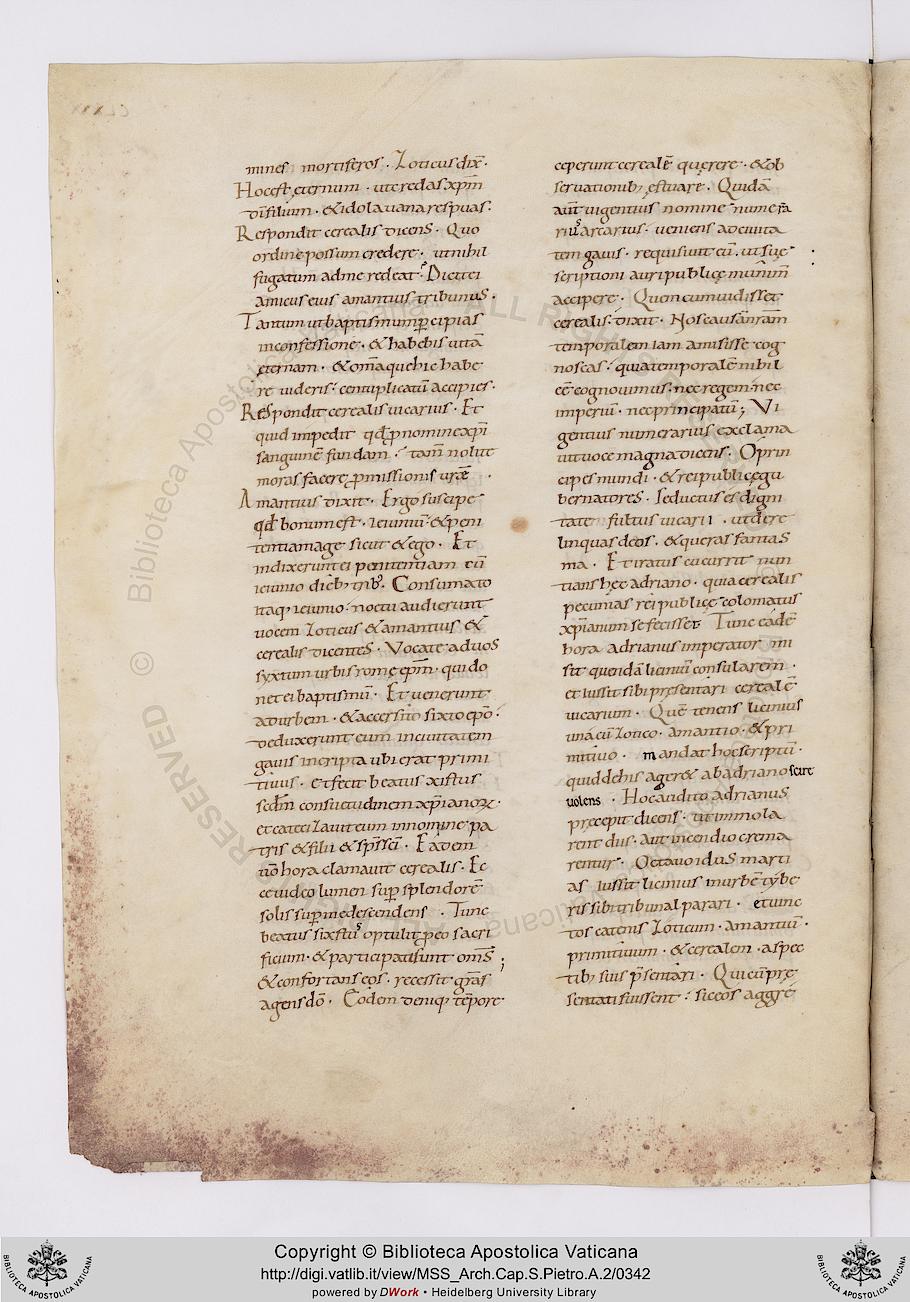 mines mortiferos · Zoticus dix̄ ·
Hoc est ęternum · ut credas xp̄m
dī filium · & idola uana respuas ·
Respondit cerealis dicens · Quo
ordine possum credere · ut nihil
fugatum ad me redeat · Dicit ei
amicus eius amantius tribunus ·
Tantum ut baptismum p̄cipias
in confessione · & habebis uitā
ęternam · & om̄a quę hic habe
re uideris · centuplicatū accipies ·
Respondit cerealis uicarius · Et
quid impedit qđ p nomine xp̄i
sanguinē fundam · tam̄ nolite
moras facere p̄missionis ur̄ę ·
Amantius dixit · Ergo suscipe
qđ bonum est · ieiuniū · & peni
tentiam age sicut & ego · Et
indixerunt ei penitentiam cū
ieiunio dieb; trib; · Consumato
itaq; ieiunio · noctu audierunt
uocem Zoticus & amantius &
cerealis dicentes · Vocate ad uos
syxtum urbis romę ep̄m · qui do
net ei baptismū · Et uenerunt
ad urbem · & accersito sixto ep̄o ·
deduxerunt eum in ciuitatem
gauis in cripta ubi erat primi
tiuus · et fecit beatus xistus
scđm consuetudinem xp̄ianorꝝ ·
et catecizauit eum in nomine pa
tris & filii & sp̄s sc̄i · Eadem
u̅o hora clamauit cerealis · Ec
ce uideo lumen sup̄ splendorē
solis sup̄ me descendens · Tunc
beatus sixtus optulit p eo sacri
ficium · & participati sunt om̄s ;
& confortans eos · recessit gr̄as
agens dō · Eodem deniq; tēpore
ceperunt cerealē quęrere · & ob
seruationib; ęstuare · Quidā
aūt uigentius nomine numera
rius arcarius · ueniens ad ciuita
tem gauis · requisiuit eū · ut suę
scriptioni auri publicę munim̄
acciperet · Quem cum uidisset
cerealis · dixit · Nos causā nr̄am
temporalem iam amisisse cog
noscas · quia temporalē nihil
eē cognouimus · nec regem · nec
imperiū · nec principatū ; Vi
gentius numerarius exclama
uit uoce magna dicens · O prin
cipes mundi · & rei publicę gu
bernatores · seductus es digni
tate fultus uicarii · ut dere
linquas deos · & queras fantas
ma · Et iratus cucurrit nun
tians hęc adriano · quia cerealis
pecunias rei publicę colomatus
xp̄ianum se fecisset Tunc eādē
hora adrianus imperator mi
sit quendā liciniū consularem ·
et iussit sibi presentari cerealē
uicarium · Quē tenens licinius
una cū Zotico · amantio · & pri
mitiuo · mandat hoc scriptū ·
quid de his ageret ab adriano scire
uolens · Hoc audito adrianus
pręcepit dicens · ut immola
rent diis · aut incendio crema
rentur · Octauo idus marti
as iussit licinius in urbē tybe
ris sibi tribunal parari · et iunc
tos catenis Zoticum · amantiū ·
primitiuum · & cerealem · aspec
tib; suis p̄sentari · Qui cū prę
sentati fuissent · sic eos aggre